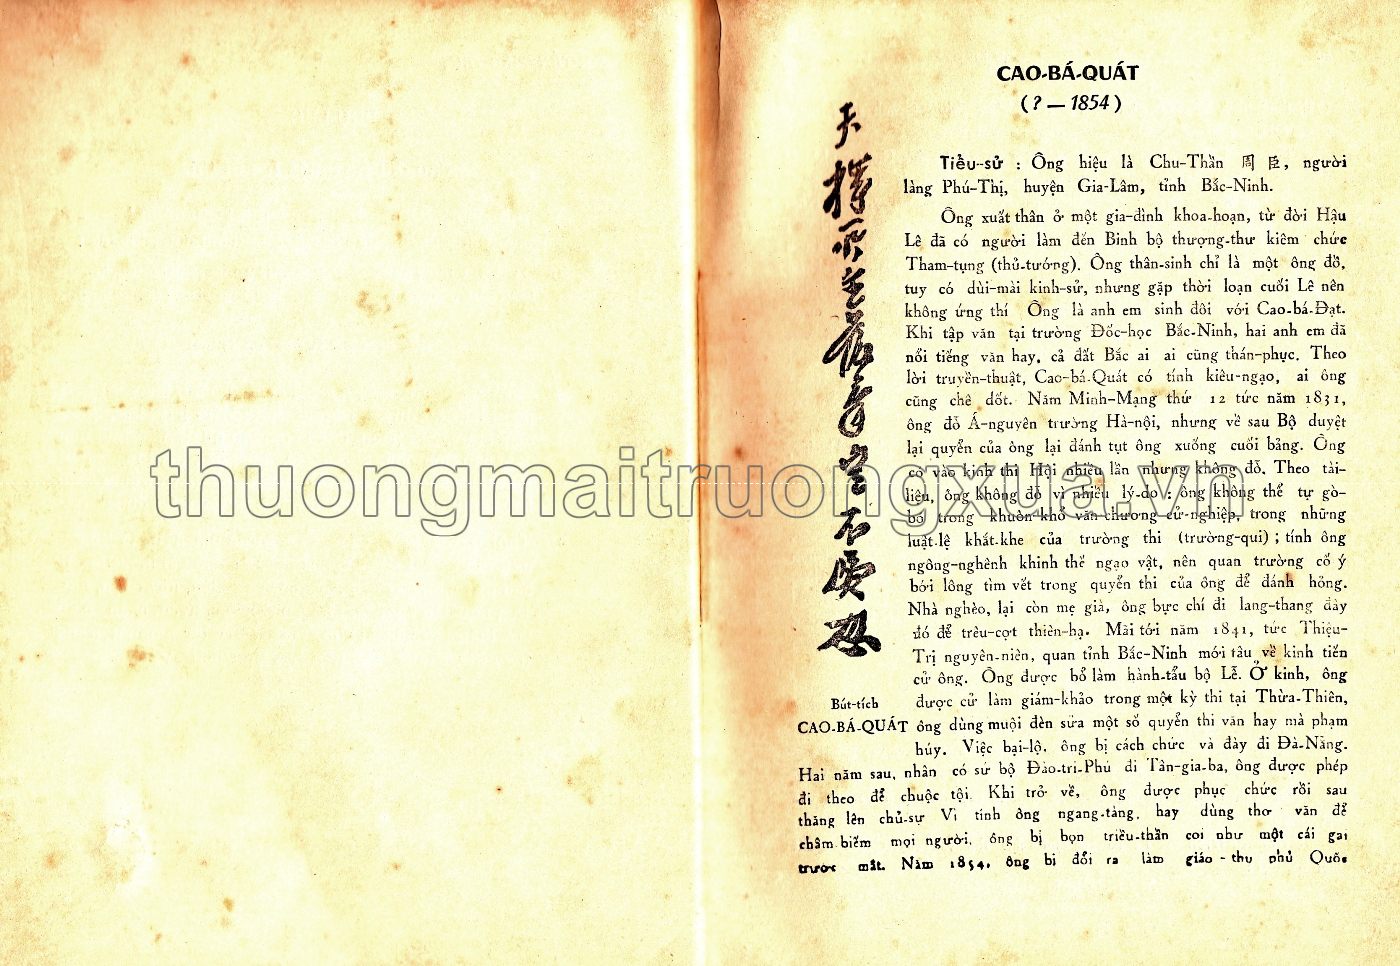 CAO-BÁ-QUÁT
(? — 1854)
Tiểu-sử : Ông hiệu là Chu-Thần 周臣, người
làng Phú-Thị, huyện Gia-Lâm, tỉnh Bắc-Ninh.
Ông xuất thân ở một gia-đình khoa-hoạn, từ đời Hậu
Lê đã có người làm đến Binh bộ thượng-thư kiêm chức
Tham-tụng (thủ-tướng). Ông thân-sinh chỉ là một ông đồ,
tuy có dùi-mài kinh-sử, nhưng gặp thời loạn cuối Lê nên
không ứng thí Ông là anh em sinh đôi với Cao-bá-Đạt.
Khi tập văn tại trường Đốc-học Bắc-Ninh, hai anh em đã
nổi tiếng văn hay, cả đất Bắc ai ai cũng thán-phục. Theo
lời truyền-thuật, Cao-bá-Quát có tính kiêu-ngạo, ai ông
cũng chê dốt. Năm Minh-Mạng thứ 12 tức năm 1831,
ông đỗ Á-nguyên trường Hà-nội, nhưng về sau Bộ duyệt
lại quyển của ông lại đánh tụt ông xuống cuối bảng. Ông
có vào kinh thi Hội nhiều lần nhưng không đỗ. Theo tài-
liệu, ông không đỗ vì nhiều lý-do : ông không thể tự gò-
bó trong khuôn-khổ văn-chương cử-nghiệp, trong những
luật-lệ khắt-khe của trường thi (trường-qui) ; tính ông
ngông-nghênh khinh thế ngạo vật, nên quan trường cố ý
bới lông tìm vết trong quyển thi của ông để đánh hỏng.
Nhà nghèo, lại còn mẹ già, ông bực chí đi lang-thang đây
đó để trêu-cợt thiên-hạ. Mãi tới năm 1841, tức Thiệu-
Trị nguyên-niên, quan tỉnh Bắc-Ninh mới tâu về kinh tiến
cử ông. Ông được bổ làm hành-tẩu bộ Lễ. Ở kinh, ông
được cử làm giám-khảo trong một kỳ thi tại Thừa-Thiên,
ông dùng muội đèn sửa một số quyển thi văn hay mà phạm
húy. Việc bại-lộ, ông bị cách chức và đày đi Đà-Nẵng.
Bút-tích
CAO-BÁ-QUÁT
Hai năm sau, nhân có sứ bộ Đào-trí-Phú đi Tân-gia-ba, ông được phép
đi theo để chuộc tội. Khi trở về, ông được phục chức rồi sau
thăng lên chủ-sự Vì tính ông ngang-tàng, hay dùng thơ văn để
châm biếm mọi người, ông bị bọn triều-thần coi như một cái gai
trước mắt. Năm 1854, ông bị đổi ra làm giáo-thụ phủ Quốc
thuongmaitruongxua.vn